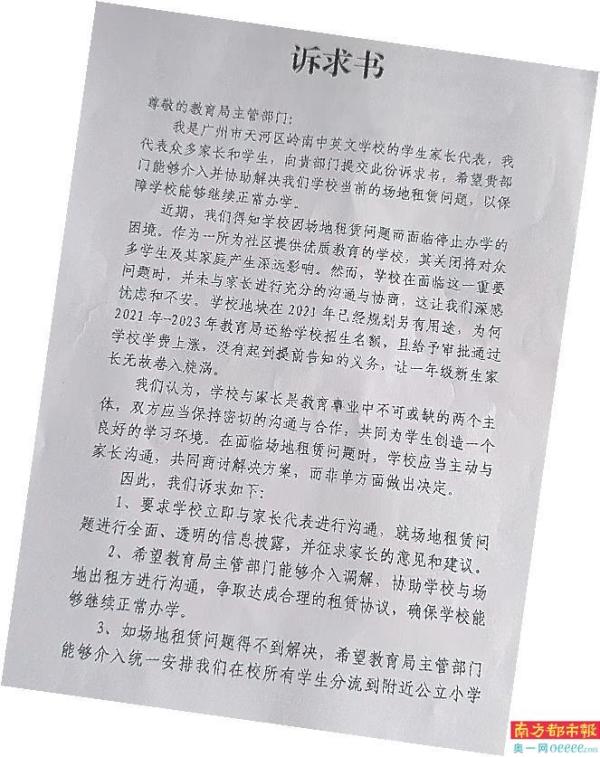 诉求书
尊敬的教育局主管部门：
我是广州市天河区岭南中英文学校的学生家长代表，我
代表众多家长和学生，向贵部门提交此份诉求书，希望贵部
门能够介入并协助解决我们学校当前的场地租赁问题，以保
障学校能够继续正常办学。
近期，我们得知学校因场地租赁问题而面临停止办学的
困境。作为一所为社区提供优质教育的学校，其关闭将对众
多学生及其家庭产生深远影响。然而，学校在面临这一重要
问题时，并未与家长进行充分的沟通与协商，这让我们深感
忧虑和不安。学校地块在2021年已经规划另有用途，为何
2021年-2023年教育局还给学校招生名额，且给予审批通过
学校学费上涨，没有起到提前告知的义务，让一年级新生家
长无故卷入旋涡。
我们认为，学校与家长是教育事业中不可或缺的两个主
体，双方应当保持密切的沟通与合作，共同为学生创造一个
良好的学习环境。在面临场地租赁问题时，学校应当主动与
家长沟通，共同商讨解决方案，而非单方面做出决定。
因此，我们诉求如下：
1、要求学校立即与家长代表进行沟通，就场地租赁问
题进行全面、透明的信息披露，并征求家长的意见和建议。
2、希望教育局主管部门能够介入调解，协助学校与场
地出租方进行沟通，争取达成合理的租赁协议，确保学校能
够继续正常办学。
3、如场地租赁问题得不到解决，希望教育局主管部门
能够介入统一安排我们在校所有学生分流到附近公立小学
南方都市報
奥一网oeeee.com